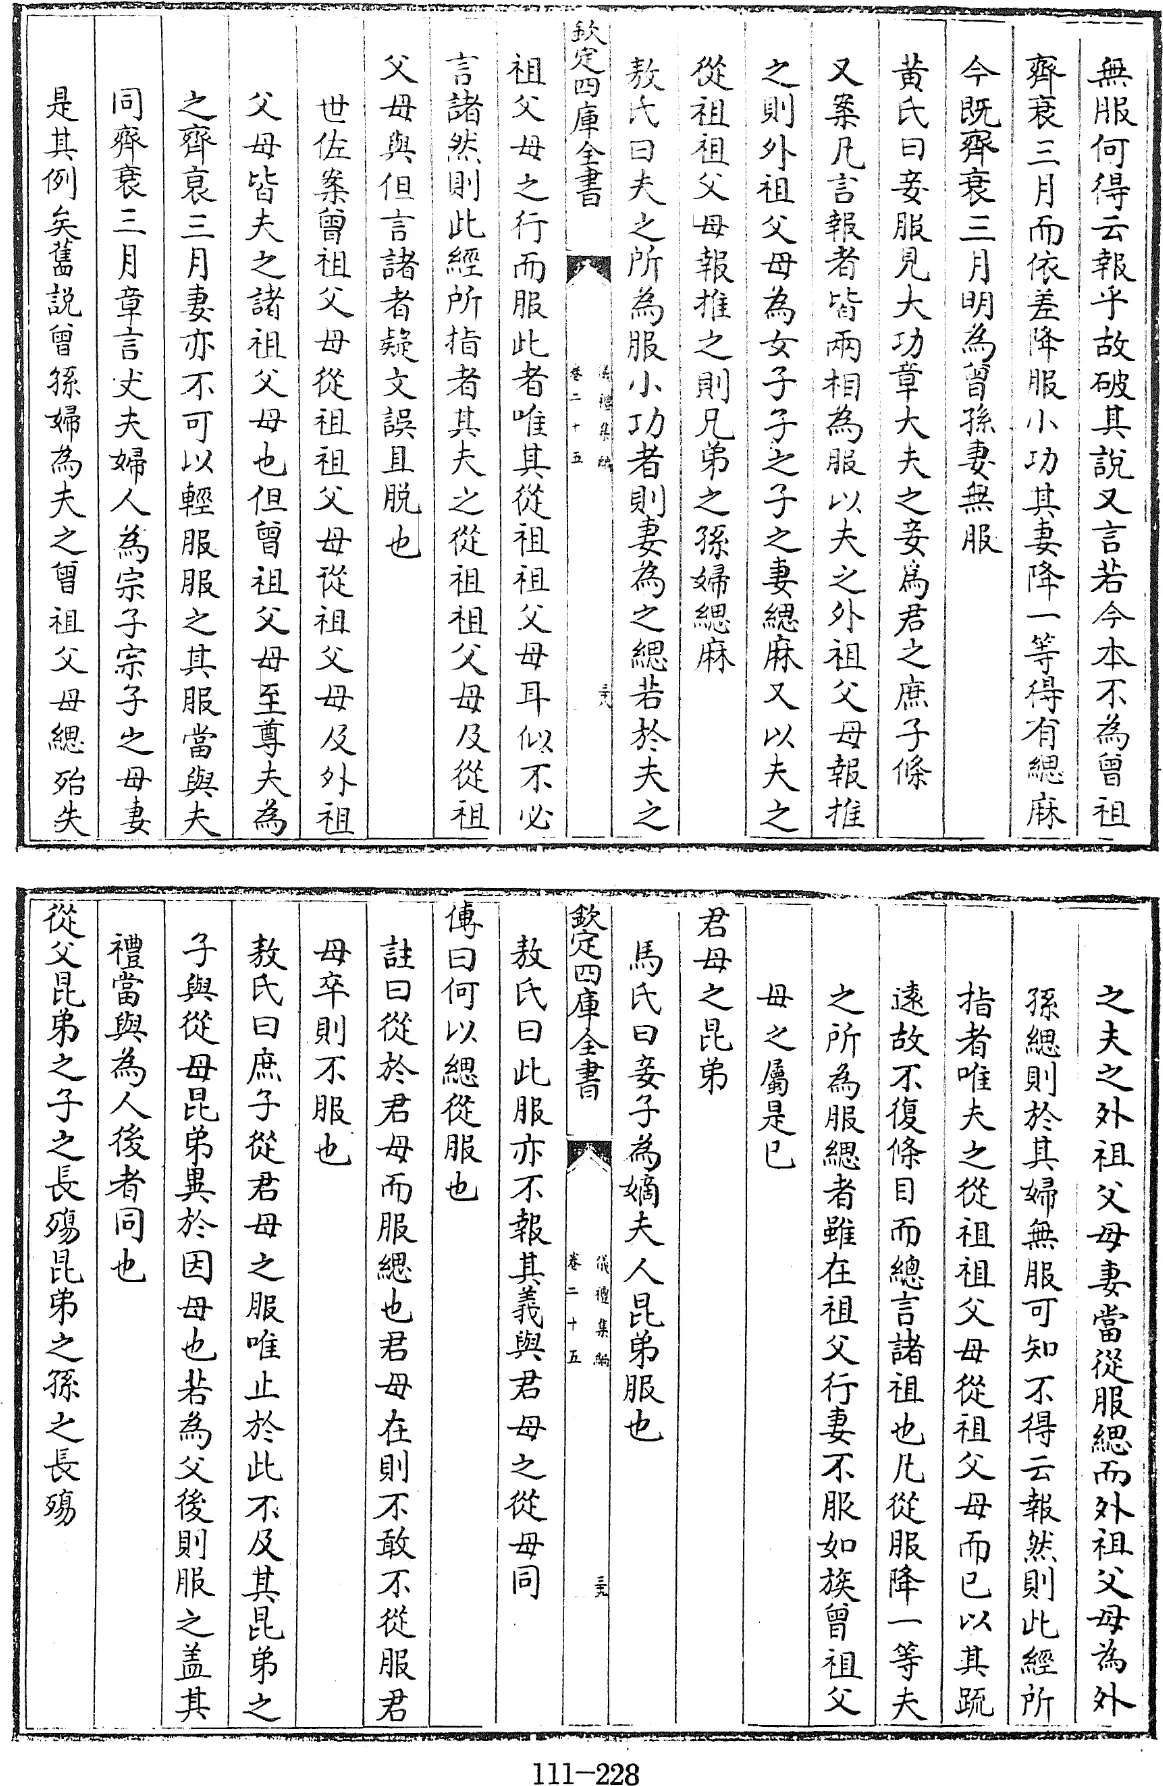 無服何得云報乎故破其說又言若今本不為曾祖
齊衰三月而依差降服小功其妻降一等得有緦麻
今既齊衰三月明為曾孫妻無服
黃氏曰妾服見大功章大夫之妾為君之庶子條
又案凡言報者皆兩相為服以夫之外祖父母報推
之則外祖父母為女子子之子之妻緦麻又以夫之
從祖祖父母報推之則兄弟之孫婦緦麻
敖氏曰夫之所為服小功者則妻為之緦若於夫之
欽定四庫全書
儀禮集編
卷二十五
祖父母之行而服此者唯其從祖祖父母耳似不必
言諸然則此經所指者其夫之從祖祖父母及從祖
父母與但言諸者疑文誤且脫也
世佐案曾祖父母從祖祖父母從祖父母及外祖
父母皆夫之諸祖父母也但曾祖父母至尊夫為
之齊衰三月妻亦不可以輕服服之其服當與夫
同齊衰三月章言丈夫婦人為宗子宗子之母妻
是其例矣舊說曾孫婦為夫之曾祖父母緦殆失
之夫之外祖父母妻當從服緦而外祖父母為外
孫緦則於其婦無服可知不得云報然則此經所
指者唯夫之從祖祖父母從祖父母而已以其疏
遠故不復條目而總言諸祖也凡從服降一等夫
之所為服緦者雖在祖父行妻不服如族曾祖父
母之屬是已
君母之昆弟
馬氏曰妾子為嫡夫人昆弟服也
欽定四庫全書
儀禮集編
卷二十五
敖氏曰此服亦不報其義與君母之從母同
傳曰何以緦從服也
註曰從於君母而服緦也君母在則不敢不從服君
母卒則不服也
敖氏曰庶子從君母之服唯止於此不及其昆弟之
子與從母昆弟異於因母也若為父後則服之蓋其
禮當與為人後者同也
從父昆弟之子之長殤昆弟之孫之長殤
111-228